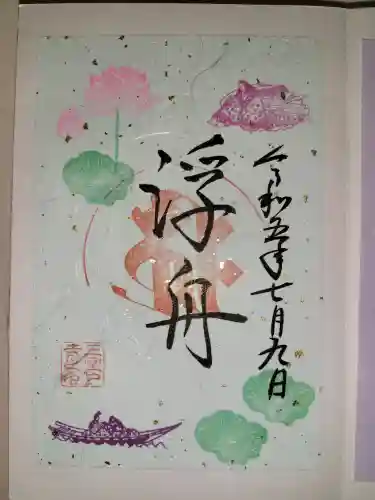 令和五年七月九日
浮舟